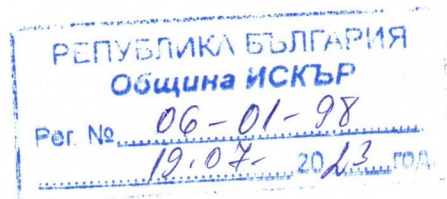 РЕПУБЛИКА БЪЛГАРИЯ
Община ИСКЪР
Рег. № 06-01-98
19.07- 2023 год.